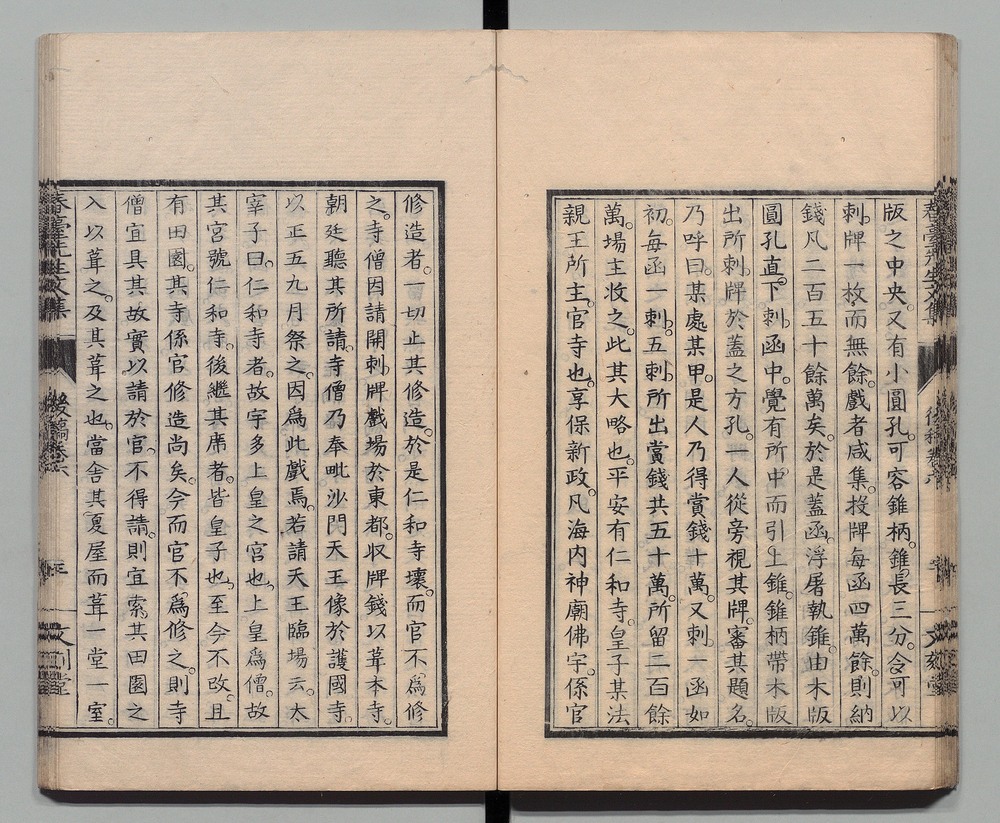 版之中央。又有小圓孔。可容錐柄。錐長三分。令可以
刺牌一枚而無餘。戲者咸集。投牌每函四萬餘。則納
錢凡二百五十餘萬矣。於是蓋函。浮屠執錐。由木版
圓孔直下。刺函中。覺有所中而引上錐。錐柄帶木版
出所刺牌於蓋之方孔。一人從旁視其牌。審其題名。
乃呼曰。某處某甲。是人乃得賞錢十萬。又刺一函如
初。每函一刺。五刺。所出賞錢共五十萬。所留二百餘
萬。場主收之。此其大略也。平安有仁和寺。皇子某法
親王所主。官寺也。享保新政。凡海內神廟佛宇。係官
修造者。一切止其修造。於是仁和寺壞。而官不爲修
之。寺僧因請開刺牌戲場於東都。収牌錢以葺本寺。
朝廷聽其所請。寺僧乃奉毗沙門天王像於護國寺。
以正五九月祭之。因爲此戲焉。若請天王臨場云。太
宰子曰。仁和寺者。故宇多上皇之宮也。上皇爲僧。故
其宮號仁和寺。後繼其席者。皆皇子也。至今不改。且
有田園。其寺係官修造尚矣。今而官不爲修之。則寺
僧宜具其故實。以請於官。不得請。則宜索其田園之
入以葺之。及其葺之也。當舍其夏屋而葺一堂一室。
春臺先生文集
後稿卷六
文刻堂